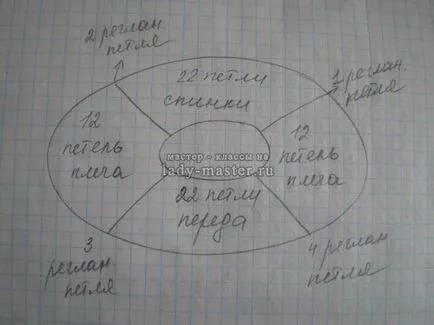 2 реглан.
петля
1 реглан.
петля
22 петли
спинки
12
петель
плеча
12
петель
плеча
мастер - классы на
lady-master.ru
22 петли
переда
3
реглан.
петля
4 реглан
петля